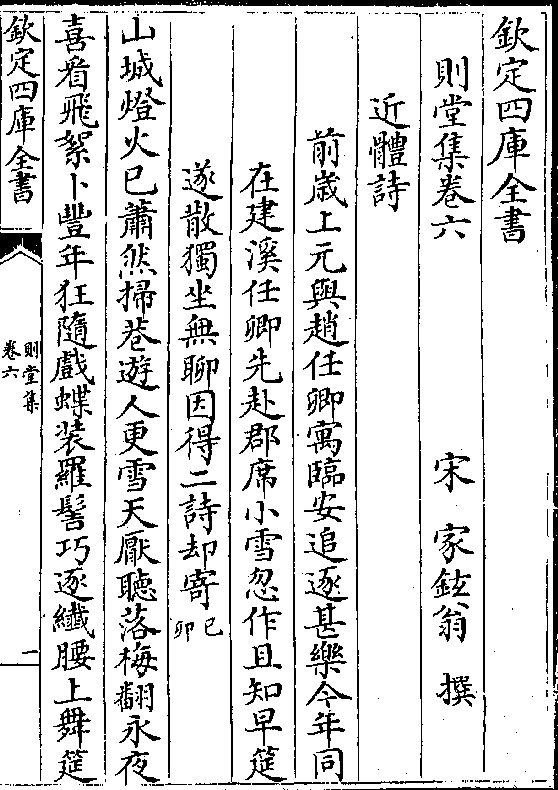 欽定四庫全書
則堂集卷六　宋　家鉉翁　撰
近體詩
前歲上元與趙任卿寓臨安追逐甚樂今年同
在建溪任卿先赴郡席小雪忽作且知早筵
遂散獨坐無聊因得二詩却寄己卯
山城燈火已蕭然掃巷遊人更雪天厭聴落梅翻永夜
喜看飛絮卜豐年狂隨戲蝶装羅髻巧逐纎腰上舞筵
欽定四庫全書
則堂集
卷六
一